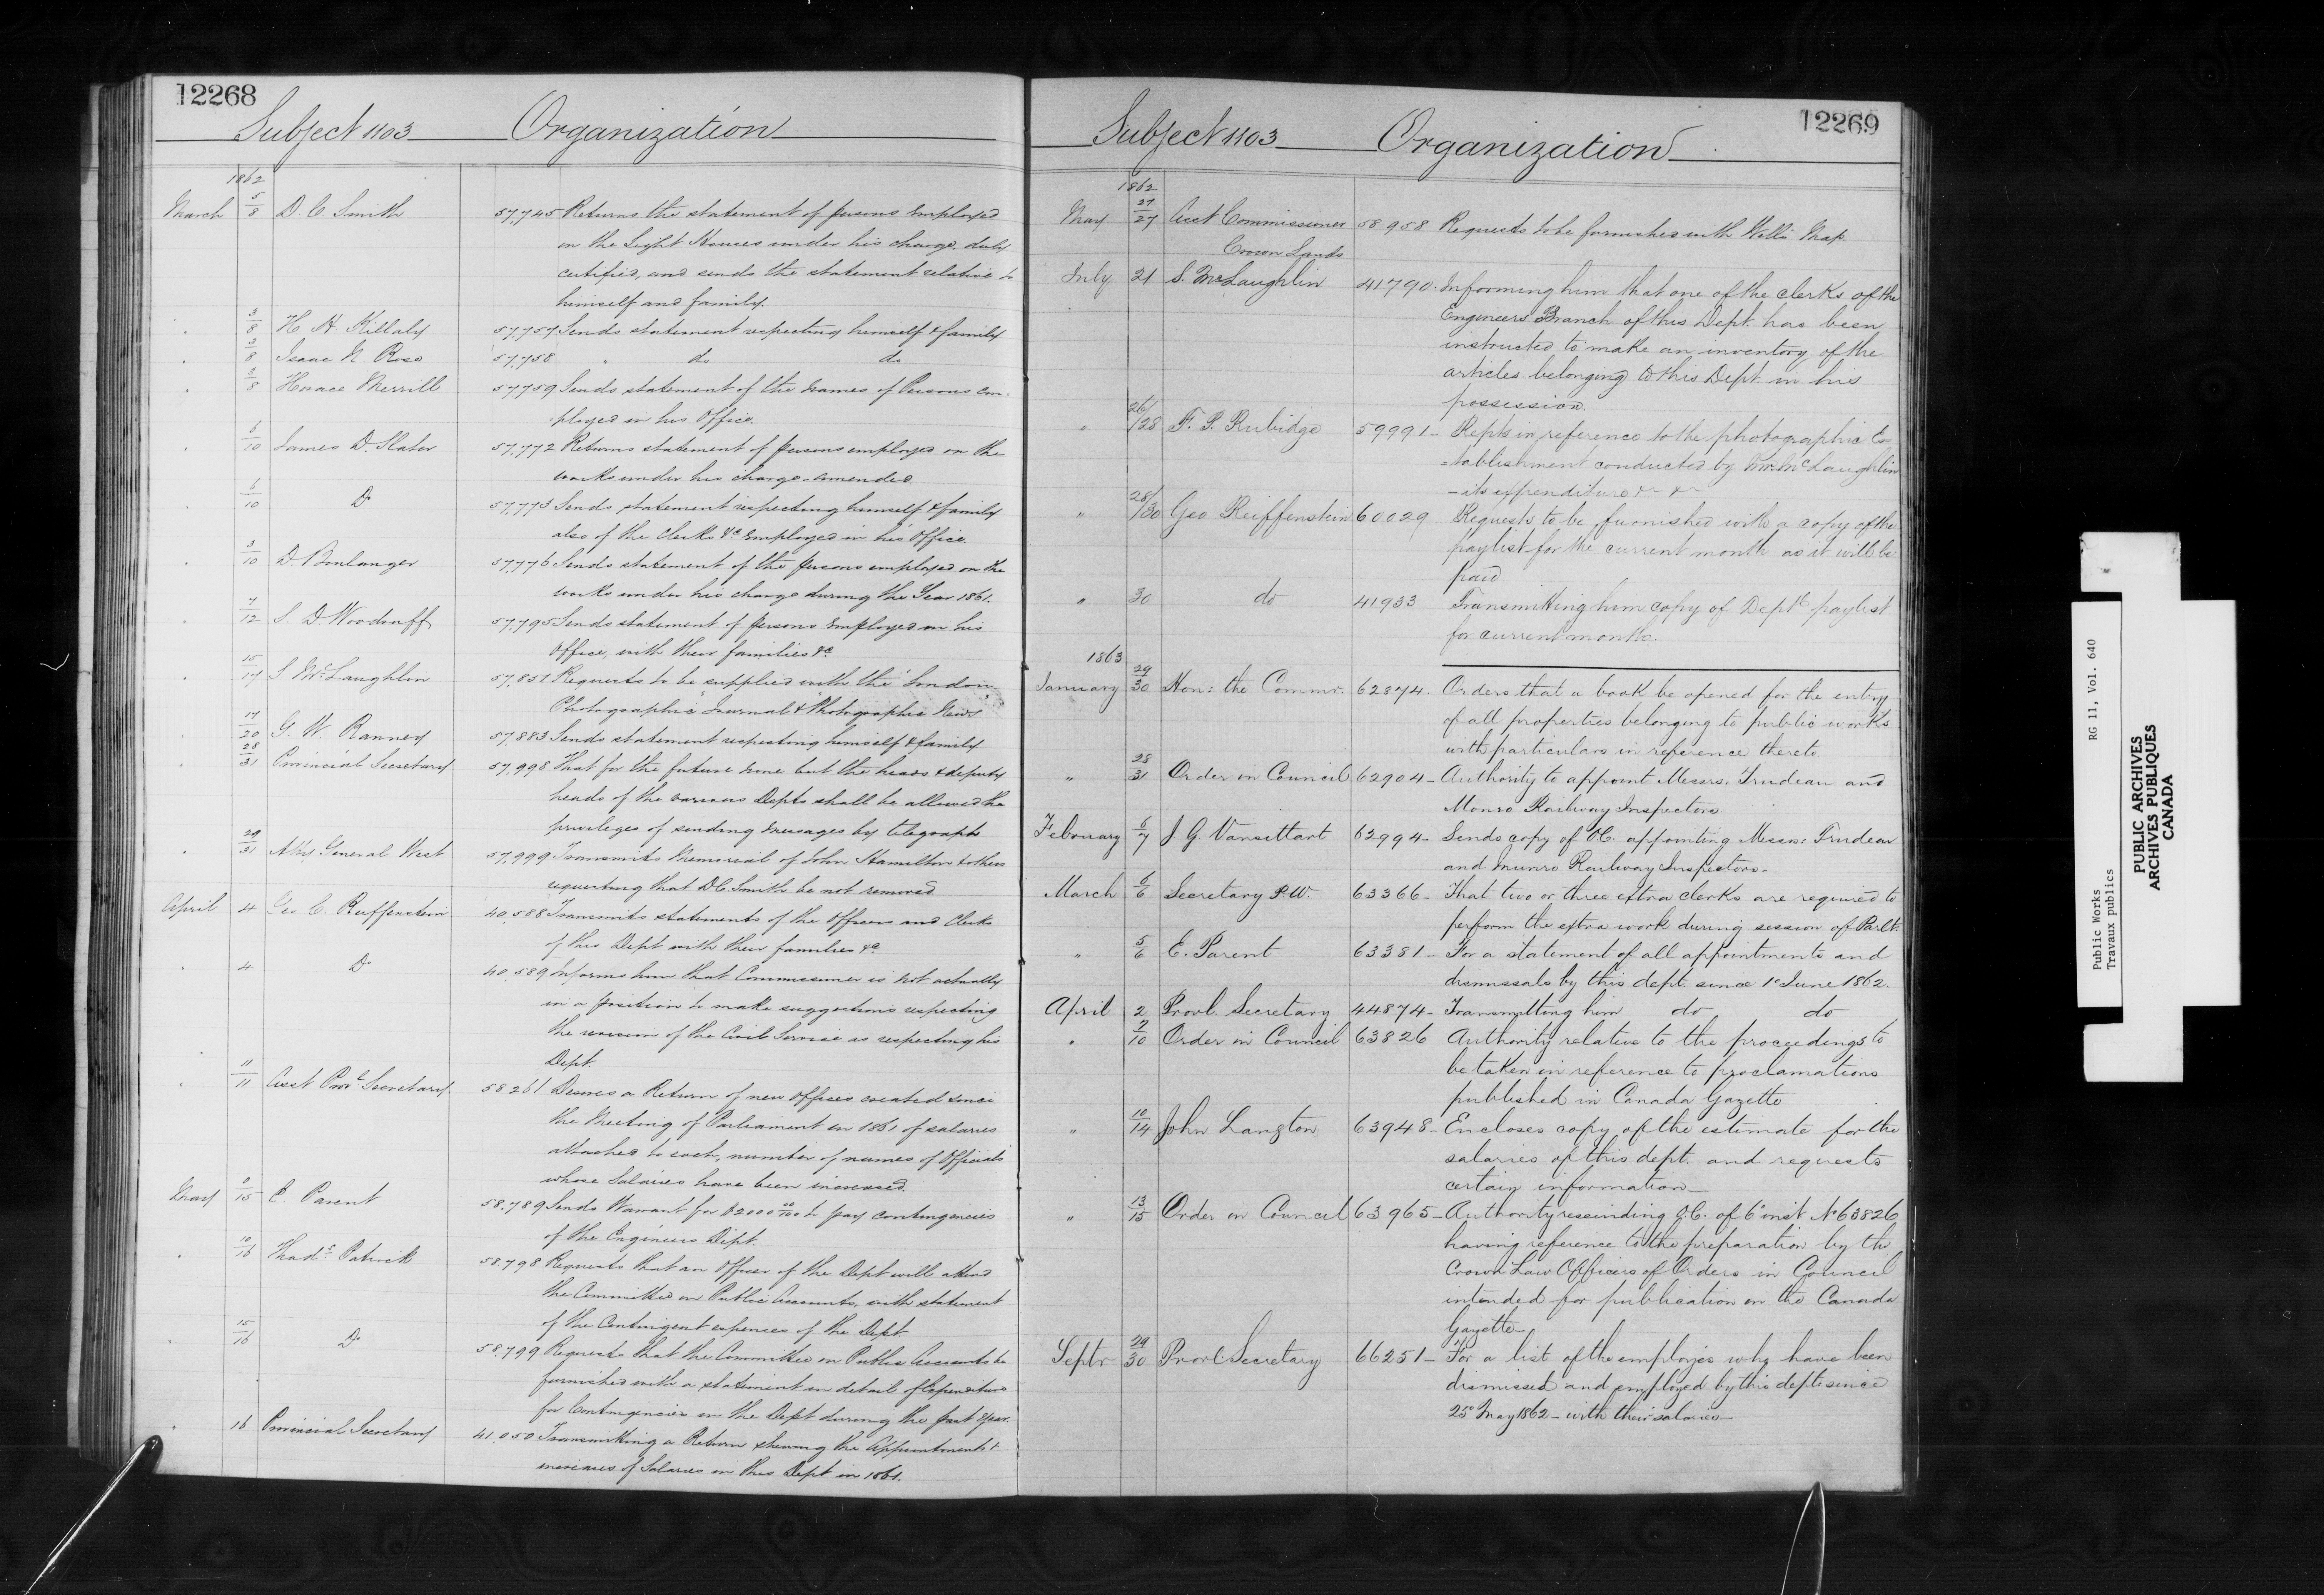 12268
Subject 1103 Organization
1862
March 5/8 D. C. Smith 57,745 Returns the statement of persons employed
on the Light Houses under his charge, duly
certified, and sends the statement relative to
himself and family.
" 3/8 H. H. Killaly 57,757 Sends statement respecting himself & family
" 3/8 Isaac N. Rose 57,758 " do do
" 3/8 Horace Merrill 57,759 Sends statement of the names of Persons em-
ployed in his Office.
" 6/10 James D. Slater 57,772 Returns statement of persons employed on the
works under his charge - amended
" 6/10 Do 57,773 Sends statement respecting himself & family
also of the Clerks &c employed in his Office.
" 3/10 D. Boulanger 57,776 Sends statement of the persons employed on the
works under his charge during the Year 1861.
" 7/12 S. D Woodruff 57,795 Sends statement of persons employed in his
Office, with their families &c
" 15/17 S McLaughlin 57,851 Requests to be supplied with the "London
Photographic Journal" & "Photographic News"
" 17/20 G. W. Ranney 57,883 Sends statement respecting himself & family
" 28/31 Provincial Secretary 57,998 That for the future none but the heads & deputy
heads of the various Depts shall be allowed the
privileges of sending messages by telegraph
" 29/31 Att'y General West 57,999 Transmits Memorial of John Hamilton & others
requesting that D C Smith be not removed
April 4 Geo C. Reiffenstein 40,588 Transmits statements of the Officers and Clerks
of this Dept with their families &c
" 4 Do 40,589 Informs him that Commissioner is not actually
in a position to make suggestions respecting
the revision of the Civil Service as respecting his
Dept.
" 11/11 Asst Provl Secretary 58261 Desires a Return of new offices created since
the Meeting of Parliament in 1861 of salaries
attached to each, number of names of Officials
whose Salaries have been increased.
May 9/15 E. Parent 58,789 Sends Warrant for $2000 00/100 to pay contingencies
of the Engineers Dept.
" 10/16 Thads Patrick 58,798 Requests that an Officer of the Dept will attend
the Committee on Public Accounts, with statement
of the Contingent expences of the Dept
" 15/16 Do 58,799 Requests that the Committee on Public Accounts be
furnished with a statement in detail of Expenditure
for Contingencies in the Dept during the past year.
" 16 Provincial Secretary 41,050 Transmitting a Return shewing the Appointments &
increases of Salaries in this Dept in 1861.
12269
Subject 1103 Organization
1862
May 27/27 Asst Commissioner 58958 Requests to be furnished with Wells Map.
Crown Lands
July 21 S. McLaughlin 41790. Informing him that one of the clerks of the
Engineers Branch of this Dept. has been
instructed to make an inventory of the
articles belonging to this Dept. in his
possession.
" 26/28 F. P. Rubidge 59991 - Repts in reference to the photographic Es
=tablishment conducted by Mr McLaughlin
- its expenditure &c &c
" 28/30 Geo Reiffenstein 60029 Requests to be furnished with a copy of the
paylist for the current month as it will be
paid
" 30 do 41933 Transmitting him copy of Deptl paylist
for current month.
1863
January 29/30 Hon: the Commr. 62874. Orders that a book be opened for the entry
of all properties belonging to public works
with particulars in reference thereto.
" 28/31 Order in Council 62904 - Authority to appoint Messrs. Trudeau and
Monro Railway Inspectors
February 6/7 J. G. Vansittart 62994 - Sends copy of OC. appointing Messrs: Trudeau
and Munro Railway Inspectors.
March 6/6 Secretary P.W. 63366 - That two or three extra clerks are required to
perform the extra work during session of Parlt.
" 5/6 E. Parent 63381 - For a statement of all appointments and
dismissals by this dept. since 1st June 1862.
April 2 Provl. Secretary 44874 - Transmitting him do do
" 7/10 Order in Council 63826 Authority relative to the proceedings to
be taken in reference to proclamations
published in Canada Gazette
" 10/14 John Langton 63948 - Encloses copy of the estimate for the
salaries of this dept. and requests
certain information -
" 13/15 Order in Council 63965 - Authority rescinding O.C. of 6th inst No 63826
having reference to the preparation by the
Crown Law Officers of Orders in Council
intended for publication in the Canada
Gazette -
Septr 29/30 Provl Secretary 66251 - For a list of the employés who have been
dismissed and employed by this dept since
25th May 1862 - with their salaries -
Public Works RG 11, Vol. 640
Travaux publics
PUBLIC ARCHIVES
ARCHIVES PUBLIQUES
CANADA